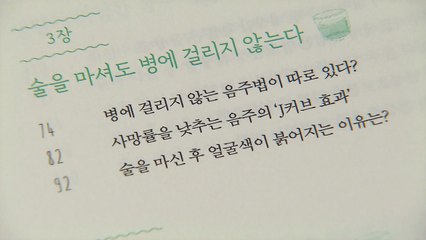 3장
술을 마셔도 병에 걸리지 않는다
74 병에 걸리지 않는 음주법이 따로 있다?
82 사망률을 낮추는 음주의 'J커브 효과'
92 술을 마신 후 얼굴색이 붉어지는 이유는?